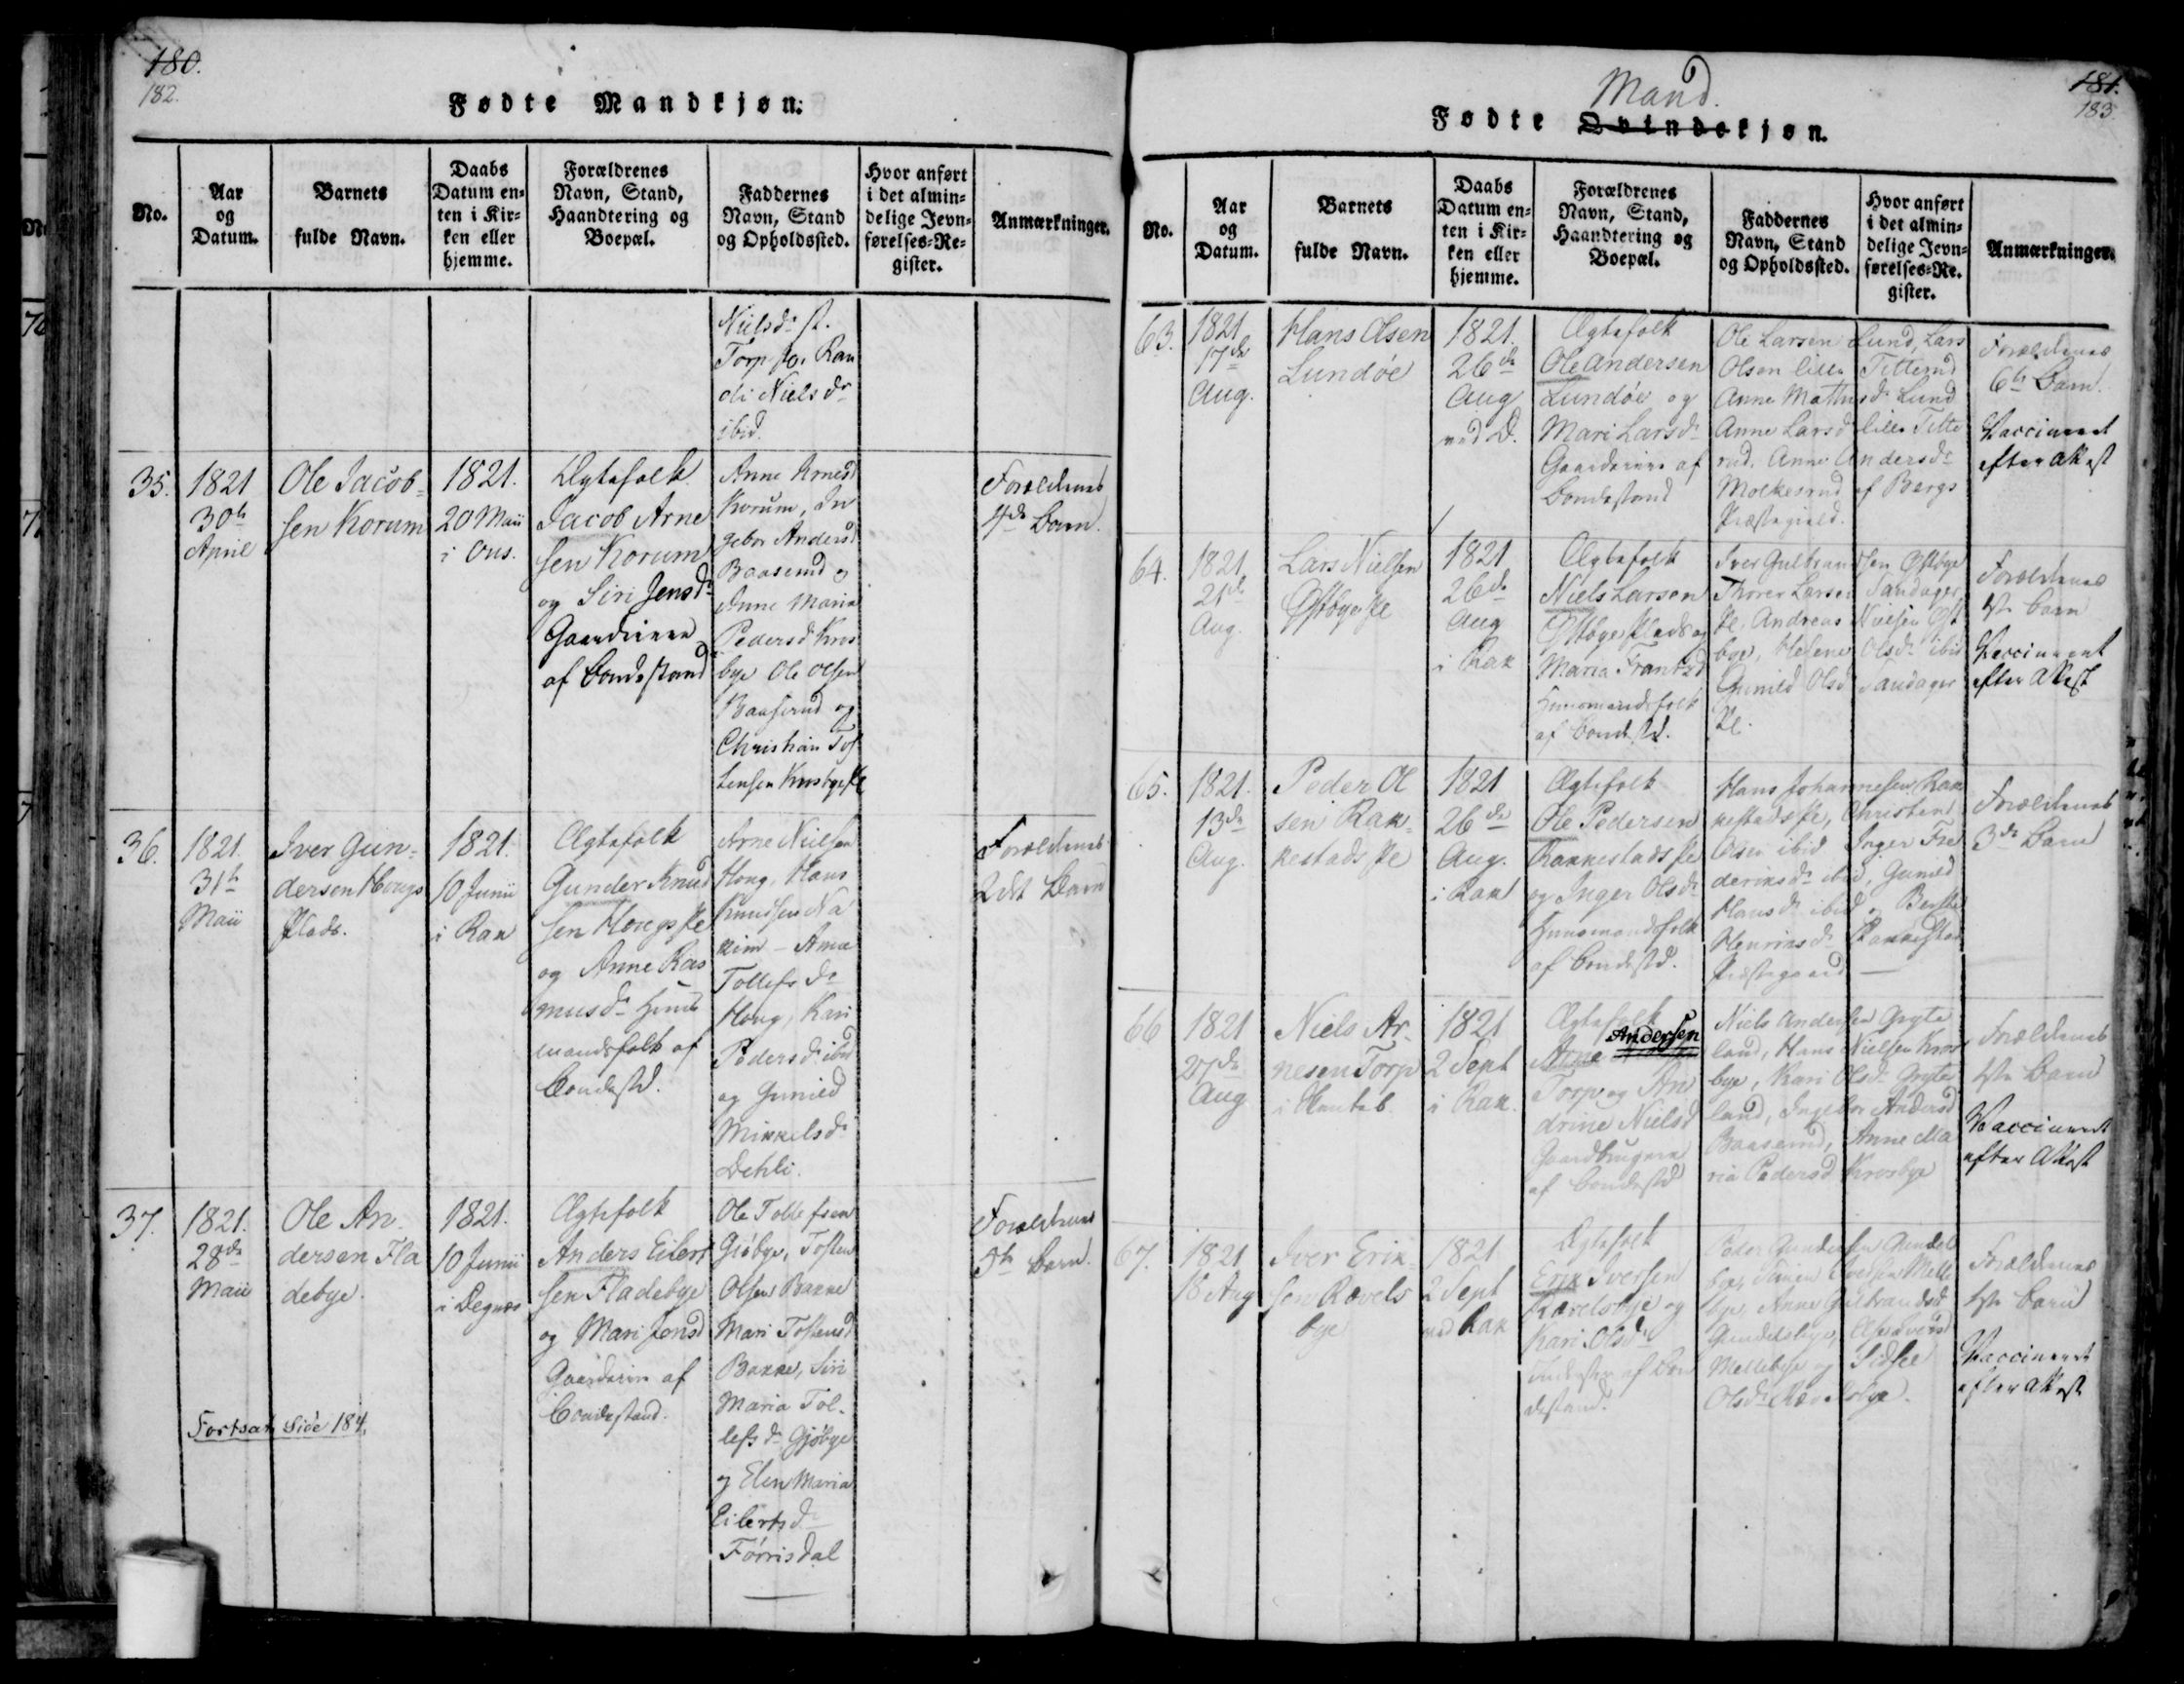 180.
182.
Fødte Mandkjøn.
No.
Aar
og
Datum.
Barnets
fulde Navn.
Daabs
Datum en=
ten i Kir=
ken eller
hjemme.
Forældrenes
Navn, Stand,
Haandtering og
Boepæl.
Faddernes
Navn, Stand
og Opholdssted.
Hvor anført
i det almin=
delige Jevn=
førelses=Re=
gister.
Anmærkninger.
Nielsdr
Torp
Nielsdr
ibid.
35.
1821
30te
April
Ole Jacob=
sen Korum
1821.
20 Maii
i Ous.
Ægtefolk
Jacob Arne
sen Korum
og Siri Jensdr
Gaardmænd
af Bondestand
Anne Arnesd
Korum, In
gebor Andersd
Baaserud og
Anne Maria
Pedersd Kros
bye Ole Olsen
Baaserud og
Christian Tos
tensen Krosbye Pl
Forældrenes
4de Barn.
36.
1821.
31te
Maii
Iver Gun=
dersen Hougs
Plads.
1821.
10 Junii
i Rak
Ægtefolk
Gunder Knud
sen Hougs Pl
og Anne Ras
musdr Huus
mandsfolk af
Bondestd.
Arne Nielsen
Houg, Hans
Knudsen Na
kim - Anne
Tollefsdr
Houg, Kari
Pedersdr ibid
og Gunild
Mikkelsdr
Dehli.
Forældrenes
2det Barn
37.
1821.
28de
Maii
Ole An
dersen Fla
debye.
1821.
10 Junii
i Degnæs
Ægtefolk
Anders Eilert
sen Fladebye
og Mari Jensd
Gaardmænd af
Bondestand.
Ole Tollefsen
Gjöbye, Tosten
Olsen Bakke
Mari Tostensd
Bakke, Siri
Maria Tol=
lefsdr Gjöbye
og Elen Maria
Eilertsdr
Förrisdal
Forældrenes
5te Barn.
Fortsat, Side 184,
181.
183.
Mand.
Fødte Qvindekjøn.
No.
Aar
og
Datum.
Barnets
fulde Navn.
Daabs
Datum en=
ten i Kir=
ken eller
hjemme.
Forældrenes
Navn, Stand,
Haandtering og
Boepæl.
Faddernes
Navn, Stand
og Opholdssted.
Hvor anført
i det almin=
delige Jevn=
førelses=Re=
gister.
Anmærkninger.
63.
1821.
17de
Aug.
Hans Olsen
Lundöe
1821.
26de
Aug
ved D.
Ægtefolk
Ole Andersen
Lundöe og
Mari Larsdr
Gaardmænd af
Bondestand
Ole Larsen Lund, Lars
Olsen lille Titterud
Anne Mathisdr Lund
Anne Larsd lille Titte
rud. Anne Andersdr
Molkerud af Bergs
Præstegield.
Forældrenes
6te Barn.
Vaccineret
efter Attest
64.
1821.
21de
Aug.
Lars Nielsen
Østbye Pl
1821
26de
Aug
i Rak
Ægtefolk
Niels Larsen
Østbye Plads og
Maria Frantzd
Huusmandsfolk
af Bondestd.
Iver Gulbrandsen Østbye
Thorer Larsen Sandager
Pl. Andreas Nielsen Øst
bye, Helene Olsdr ibid
Gunild Olsd Sandager
Pl.
Forældrenes
1ste Barn
Vaccineret
efter Attest
65.
1821.
13de
Aug.
Peder Ol
sen Rak=
kestads Pl
1821
26de
Aug.
i Rak
Ægtefolk
Ole Pedersen
Rakkestads Pl
og Inger Olsdr
Huusmandsfolk
af Bondestd.
Hans Johannesen Rak
kestads Pl, Christian
Olsen ibid Inger Fre
deriksdr ibid, Gunild
Hansdr ibid og Berthe
Henriksdr Rakkestad
Præstegaard
Forældrenes
3de Barn
66
1821
27de
Aug
Niels Ar=
nesen Torp
1821
2 Sept
i Rak.
Ægtefolk
Arne Andersen
Torp og An
drine Nielsd
Gaardbrugere
af Bondestd
Niels Andersen Gryte
land, Hans Nielsen Kros
bye, Kari Olsdr Gryte
land, Ingebor Andersd
Baaserud, Anne Ma
ria Pedersd Krosbye
Forældrenes
1ste Barn
Vaccineret
efter Attest
67.
1821
18 Aug
Iver Erik=
sen Ravels
bye
1821
2 Sept
ved Rak
Ægtefolk
Erik Iversen
Ravelsbye og
Kari Olsdr
af Bon
destand.
Peder Gundersen Gundels
bye, Simen Iversen Melle
bye Anne Gulbrandsd
Gundelsbye,
Mellebye og Sidsel
Olsdr Ravelsbye.
Forældrenes
1ste Barn
Vaccineret
efter Attest